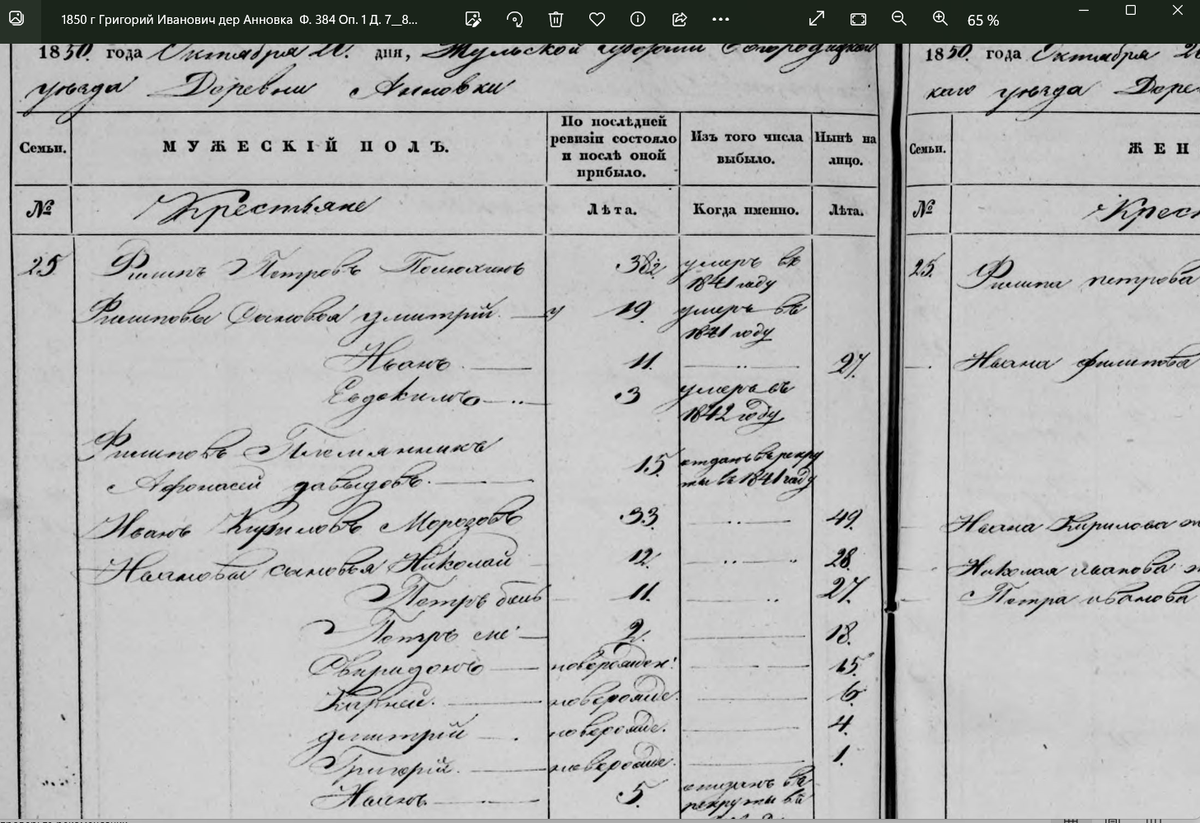 1850 г Григорий Иванович дер Анновка Ф. 384 Оп. 1 Д. 7_8...
65 %
1850. года Октября 20. дня, Тульской губернии Богородицкой
уѣзда Деревни Анновки
Семьи.
МУЖЕСКІЙ ПОЛЪ.
По послѣдней
ревизіи состояло
и послѣ оной
прибыло.
Изъ того числа
выбыло.
Нынѣ на
лицо.
№
Крестьяне
Лѣта.
Когда именно.
Лѣта.
25 Филипъ Петровъ 38 умеръ въ
1841 году
Филиповы Сыновья Дмитрій 19. умеръ въ
1841 году
Иванъ 11. 27.
Евдокимъ 3 умеръ въ
1842 году
Филиповъ Племянникъ
Афонасей Давыдовъ. 15 отданъ въ рекру
ты въ 1841 году
Иванъ Кириловъ Морозовъ 33. 49.
Ивановы сыновья Николай 12. 28.
Петръ боль 11. 27.
Петръ ме: 2. 18.
Свиридонъ новорожден: 15.
Карней. новорожде. 6.
Дмитрій новорожде. 4.
Григорій. новорожде. 1.
5. отданъ въ
рекруты въ
1850. года Октября 20
каго уѣзда Дере
Семьи.
ЖЕН
№
Крест
25. Филипа петрова
Ивана филипова
Ивана Кирилова
Николая иванова
Петра иванова